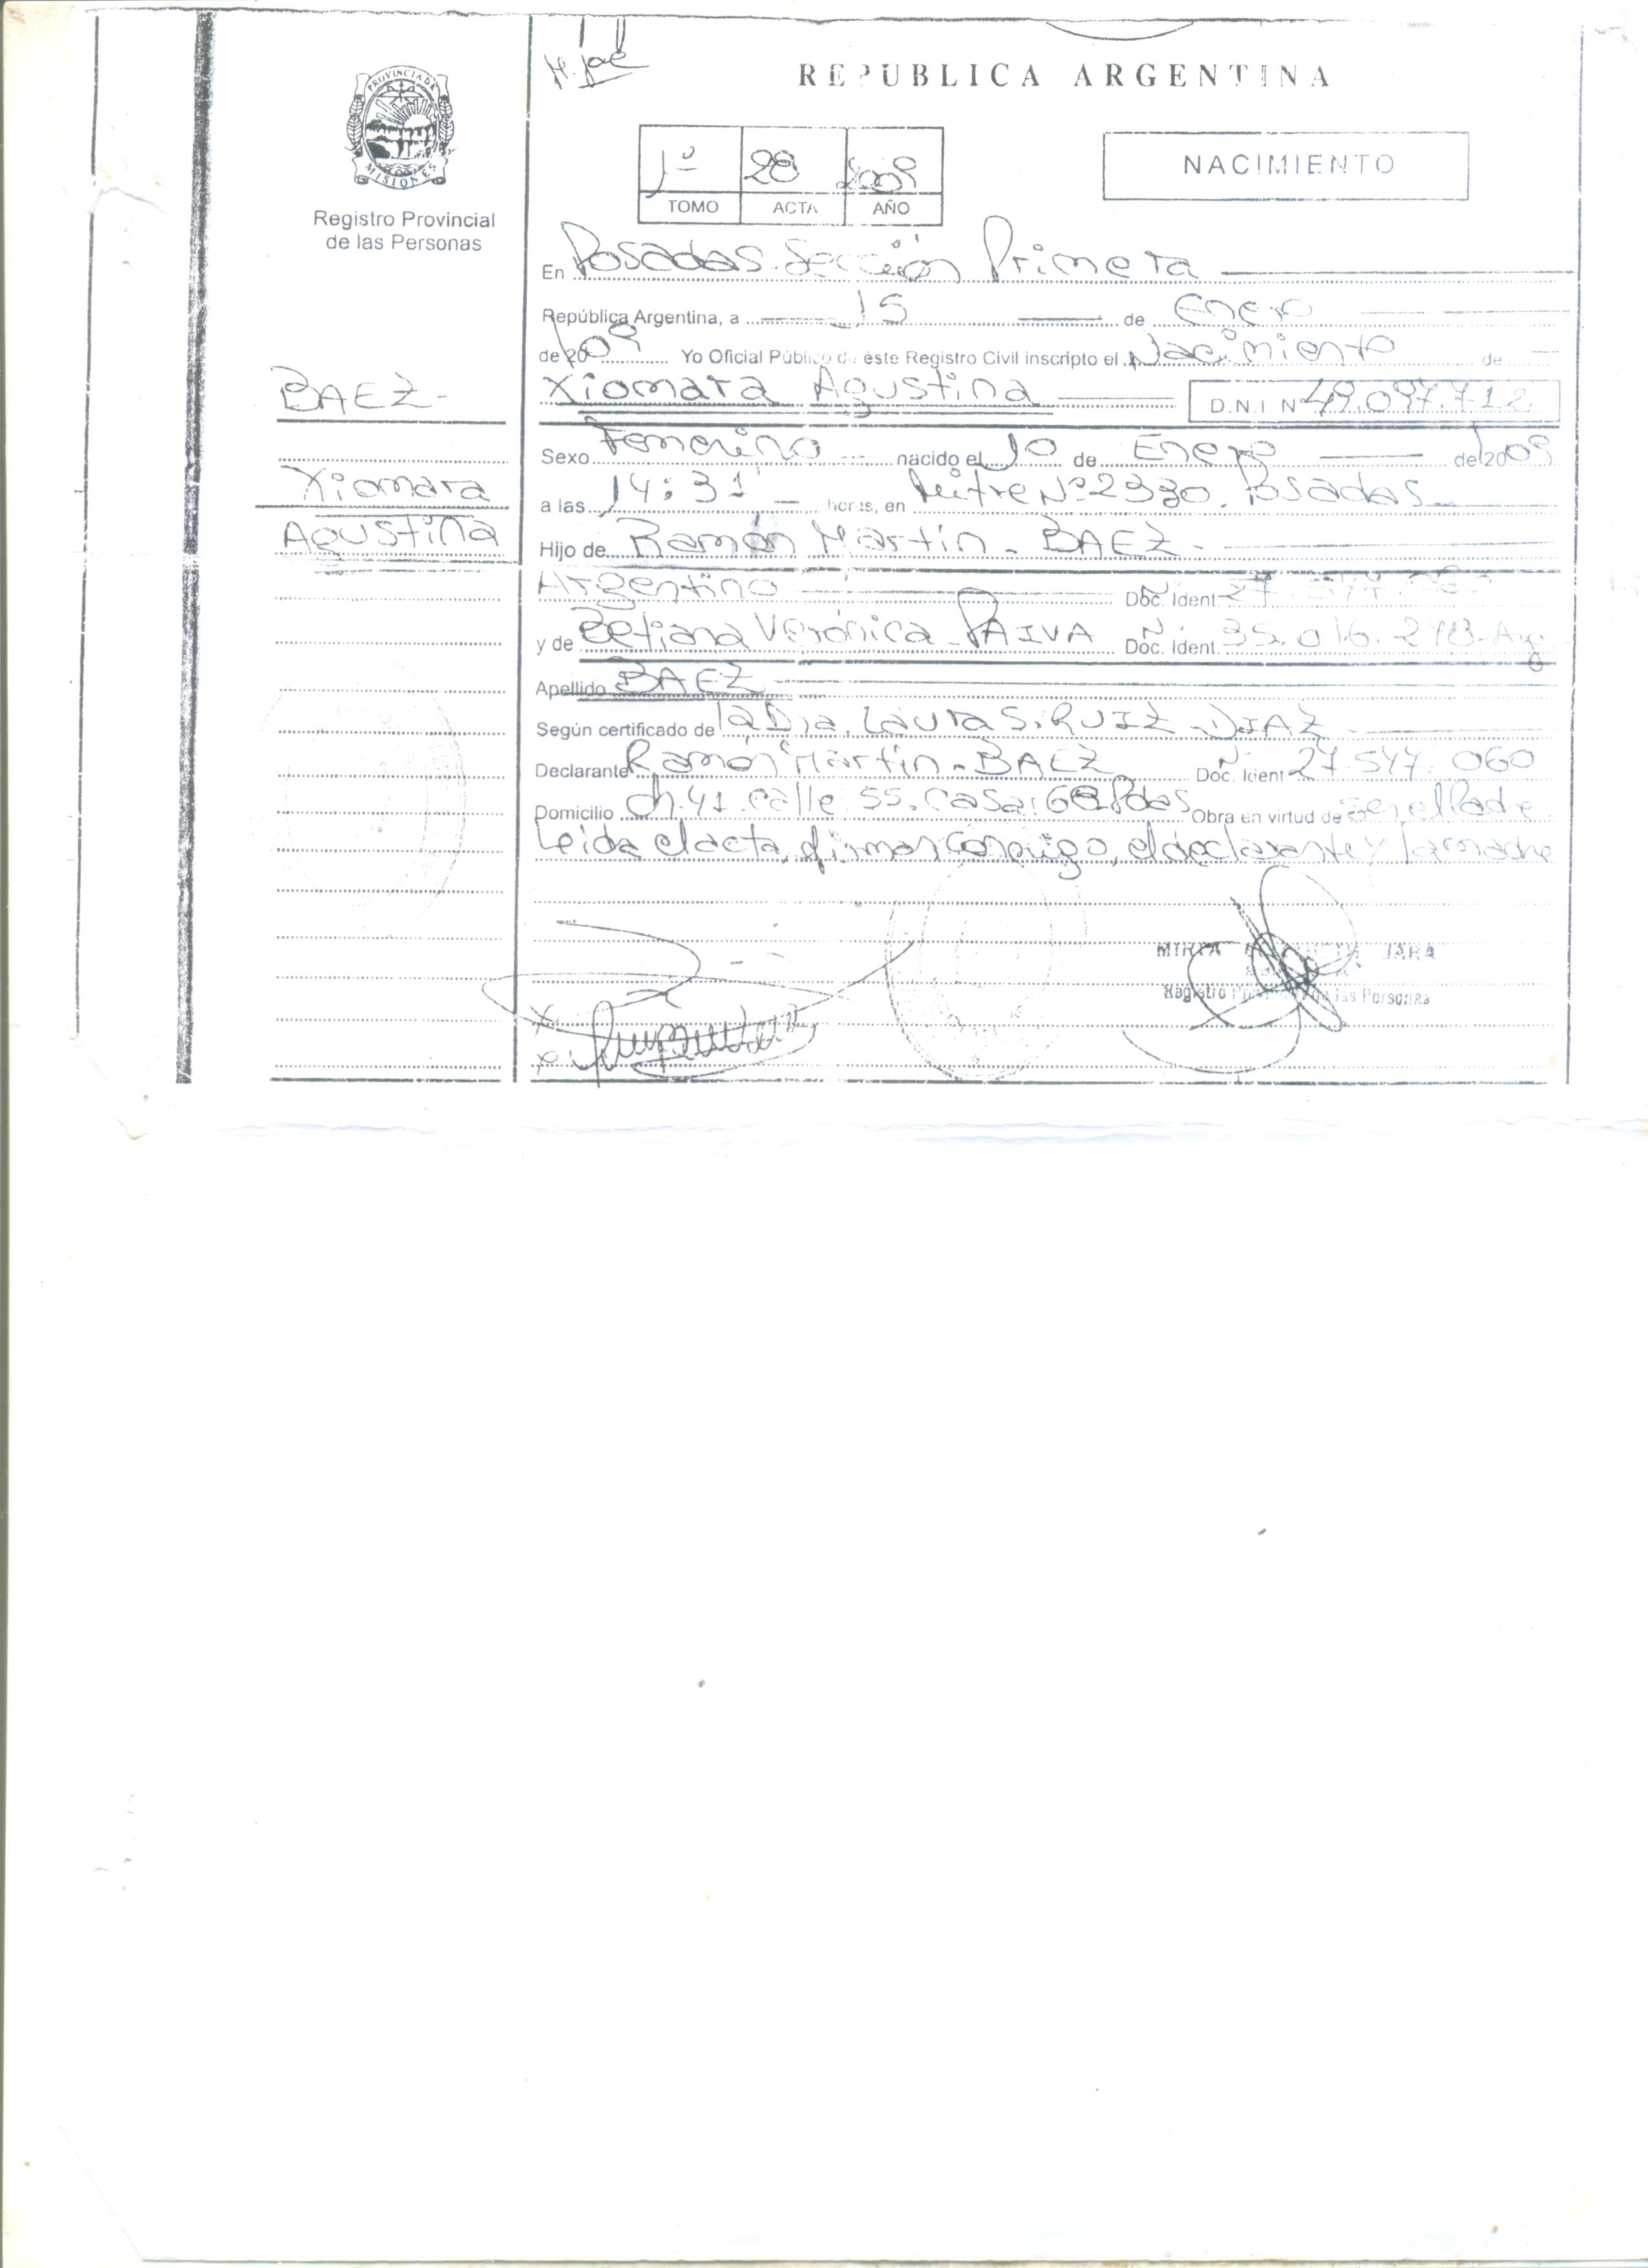 REPUBLICA ARGENTINA
PROVINCIA DE
MISIONES
Registro Provincial
de las Personas
1º 28 2009
TOMO ACTA AÑO
NACIMIENTO
En Posadas Sección Primera
República Argentina, a 15 de Enero
de 2009 Yo Oficial Público de éste Registro Civil inscripto el Nacimiento de
BAEZ-
Xiomara Agustina D.N.I. Nº 49.097.712
Sexo Femenino nacido el 10 de Enero de 2009
Xiomara
a las 14:31 horas, en Mitre Nº 2330. Posadas
Agustina
Hijo de Ramón Martín - BAEZ -
Argentino Doc. Ident. 27.
y de Betiana Verónica PAIVA Nº Doc. Ident. 35.016. Arg
Apellido BAEZ
Según certificado de la Dra. Laura S. RUIZ DIAZ
Declarante Ramón Martín - BAEZ Nº Doc. Ident 27.547.060
Domicilio ch. 41. calle 55. casa: 68 Pdas Obra en virtud de ser el Padre
Leida el acta, firman conmigo, el declarante y la madre
MIRTA JARA
Registro de las Personas